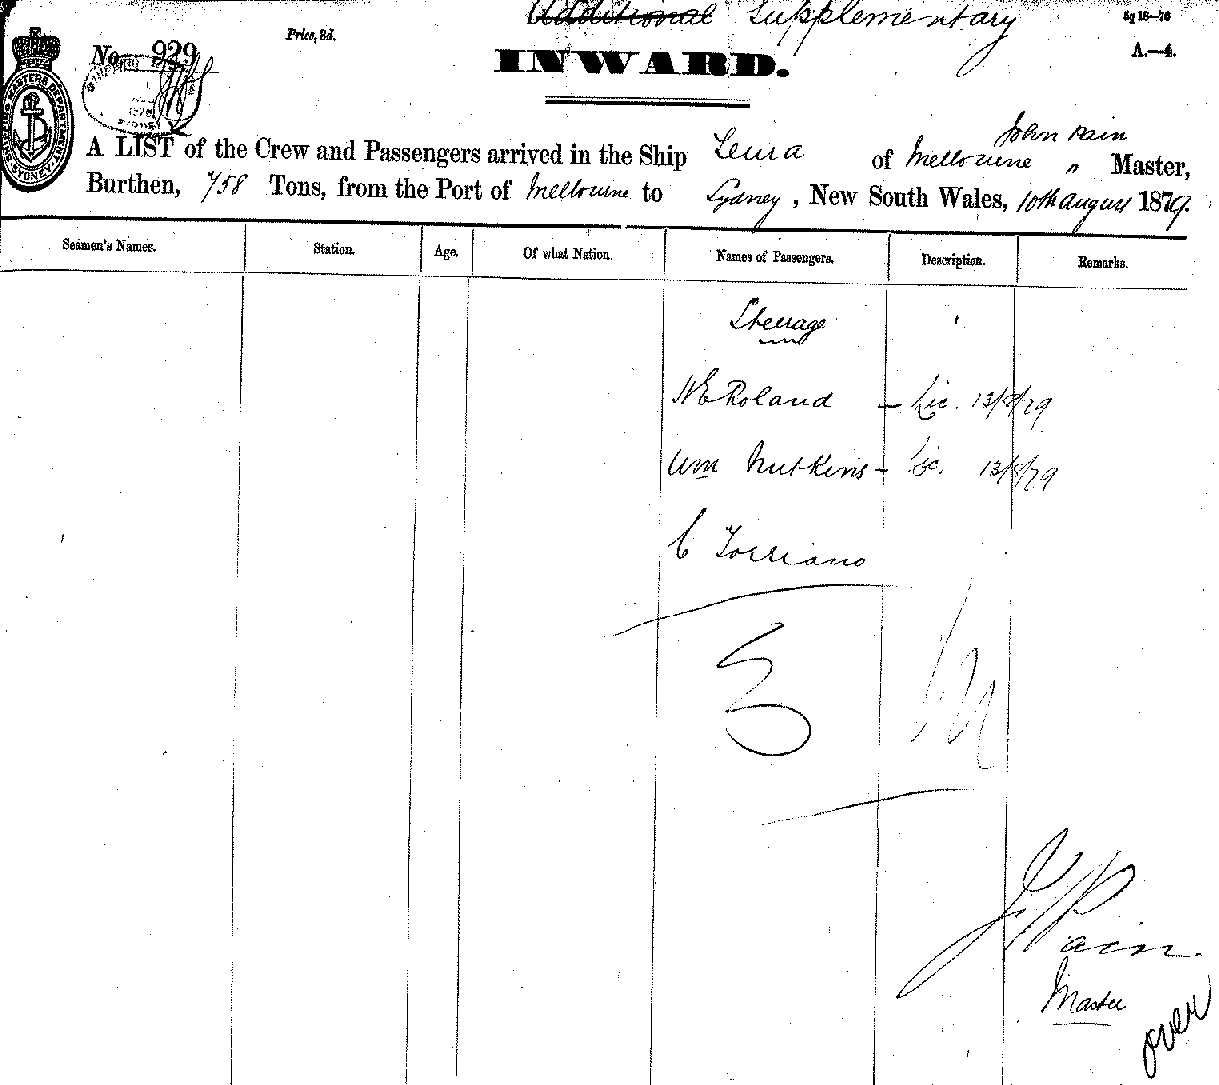 Additional Supplementary
Sg 18—76
No. 929
Price, 2d.
INWARD.
A.—4.
John Pain
A LIST of the Crew and Passengers arrived in the Ship Leura of Melbourne " Master,
Burthen, 758 Tons, from the Port of Melbourne to Sydney, New South Wales, 10th august 1879.
Seamen's Names. Station. Age. Of what Nation. Names of Passengers. Description. Remarks.
Steerage
Roland — Lic. 13/8/79
Wm Nutkins — Lic. 13/8/79
C Torriano
3
J Pain.
Master
over